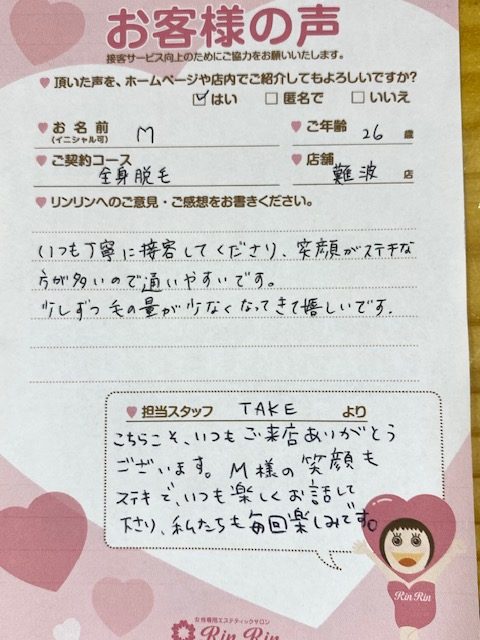 お客様の声
接客サービス向上のためにご協力をお願いいたします。
頂いた声を、ホームページや店内でご紹介してもよろしいですか?
はい 匿名で いいえ
お名前 (イニシャル可) M ご年齢 26 歳
ご契約コース 全身脱毛 店舗 難波 店
リンリンへのご意見・ご感想をお書きください。
いつも丁寧に接客してくださり、笑顔がステキな
方が多いので通いやすいです。
少しずつ毛の量が少なくなってきて嬉しいです.
担当スタッフ TAKE より
こちらこそ、いつもご来店ありがとう
ございます。M様の笑顔も
ステキで、いつも楽しくお話して
下さり、私たちも毎回楽しみです。
Rin Rin
女性専用エステティックサロン
Rin Rin